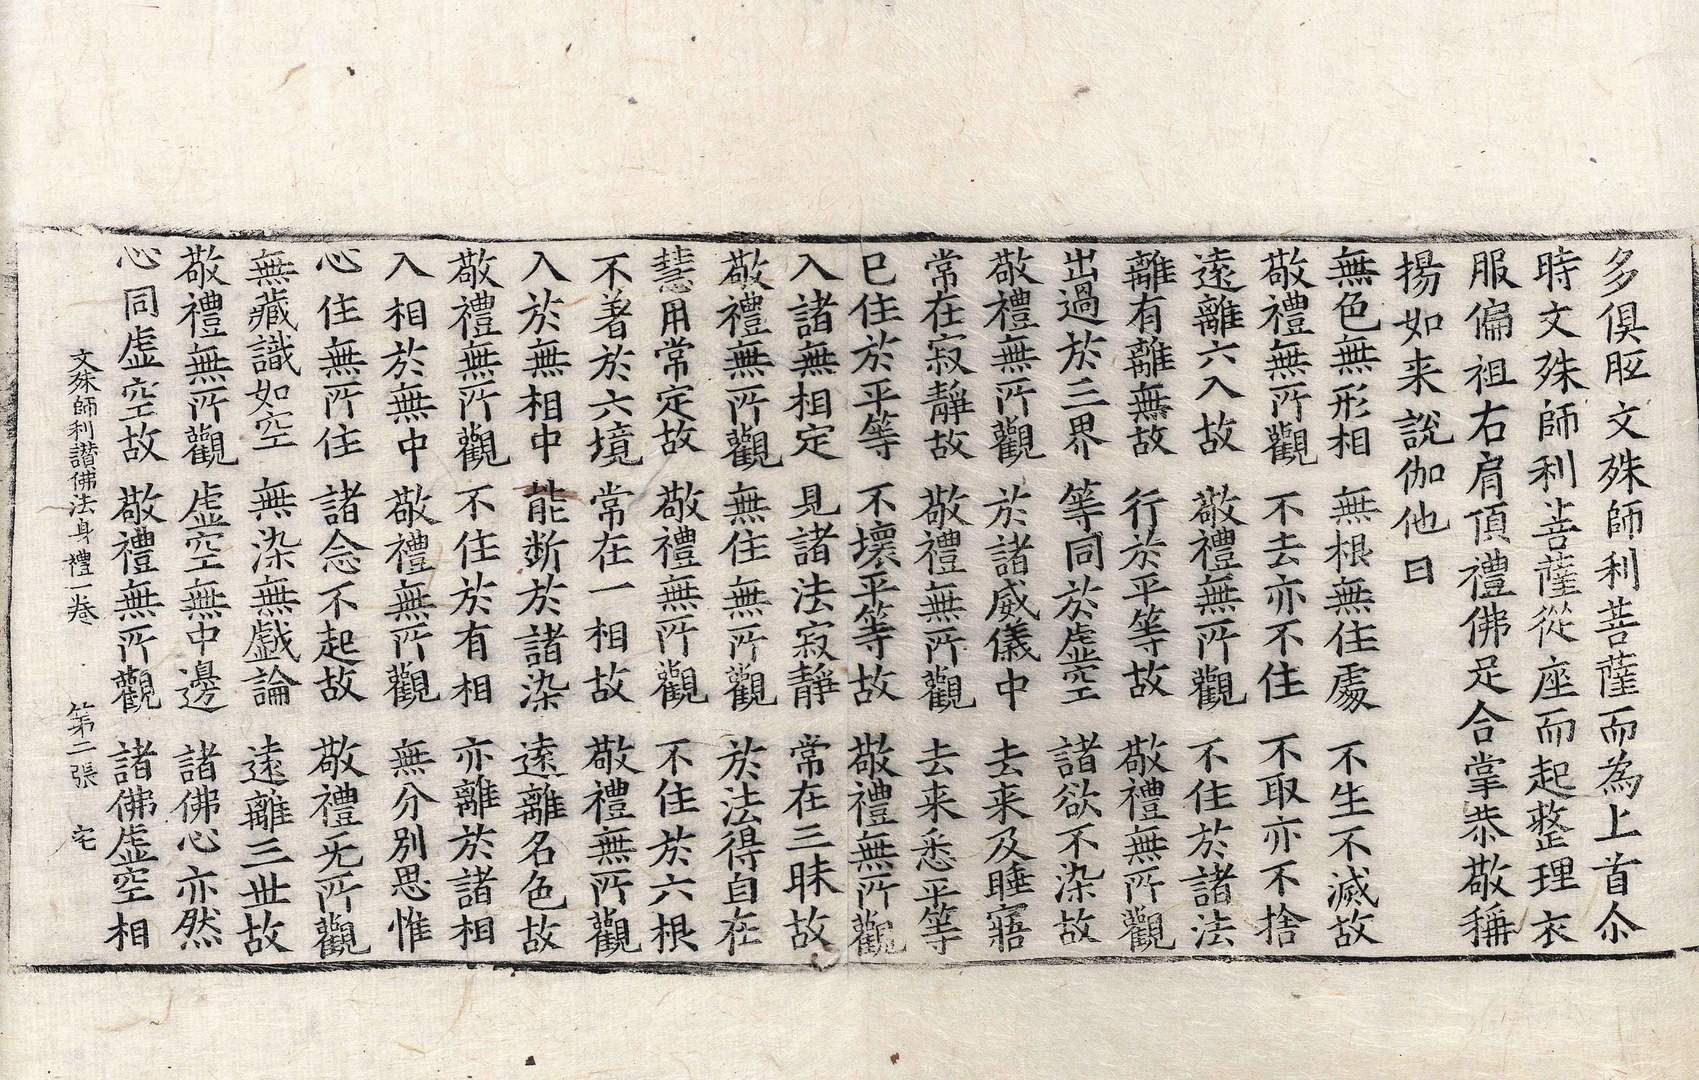 多俱胝文殊師利菩薩而為上首尒
時文殊師利菩薩從座而起整理衣
服偏袒右肩頂禮佛足合掌恭敬稱
揚如来說伽他曰
無色無形相 無根無住處 不生不滅故
敬禮無所觀 不去亦不住 不取亦不捨
遠離六入故 敬禮無所觀 不住於諸法
離有離無故 行於平等故 敬禮無所觀
出過於三界 等同於虛空 諸欲不染故
敬禮無所觀 於諸威儀中 去来及睡寤
常在寂靜故 敬禮無所觀 去来悉平等
已住於平等 不壞平等故 敬禮無所觀
入諸無相定 見諸法寂靜 常在三昧故
敬禮無所觀 無住無所觀 於法得自在
慧用常定故 敬禮無所觀 不住於六根
不著於六境 常在一相故 敬禮無所觀
入於無相中 能斷於諸染 遠離名色故
敬禮無所觀 不住於有相 亦離於諸相
入相於無中 敬禮無所觀 無分別思惟
心住無所住 諸念不起故 敬禮无所觀
無藏識如空 無染無戲論 遠離三世故
敬禮無所觀 虛空無中邊 諸佛心亦然
心同虛空故 敬禮無所觀 諸佛虛空相
文殊師利讃佛法身禮一卷 第二張 宅